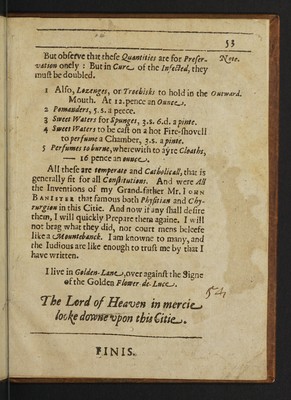 53
But observe that these Quantities are for Preser-
vation onely : But in Cure of the Infected, they
must be doubled.
Note.
1 Also, Lozenges, or Trochisks to hold in the
Mouth. At 12.pence an Ounce.
Outward.
2 Pomanders, 5.s. a peece.
3 Sweet Waters for Spunges, 3.s. 6.d. a pinte.
4 Sweet Waters to be cast on a hot Fire-shovell
to perfume a Chamber, 3.s. a pinte.
5 Perfumes to burne, wherewith to ayre Cloaths,
— 16 pence an ounce.
All these are temperate and Catholicall, that is
generally fit for all Constitutions. And were All
the Inventions of my Grand-father Mr. IOHN
BANISTER that famous both Phisitian and Chy-
rurgion in this Citie. And now if any shall desire
them, I will quickly Prepare them againe. I will
not brag what they did, nor court mens beleefe
like a Mountebanck. I am knowne to many, and
the Iudious are like enough to trust me by that I
have written.
I live in Golden-Lane, over against the Signe
of the Golden Flower-de-Luce.
The Lord of Heaven in mercie
looke downe upon this Citie.
FINIS.